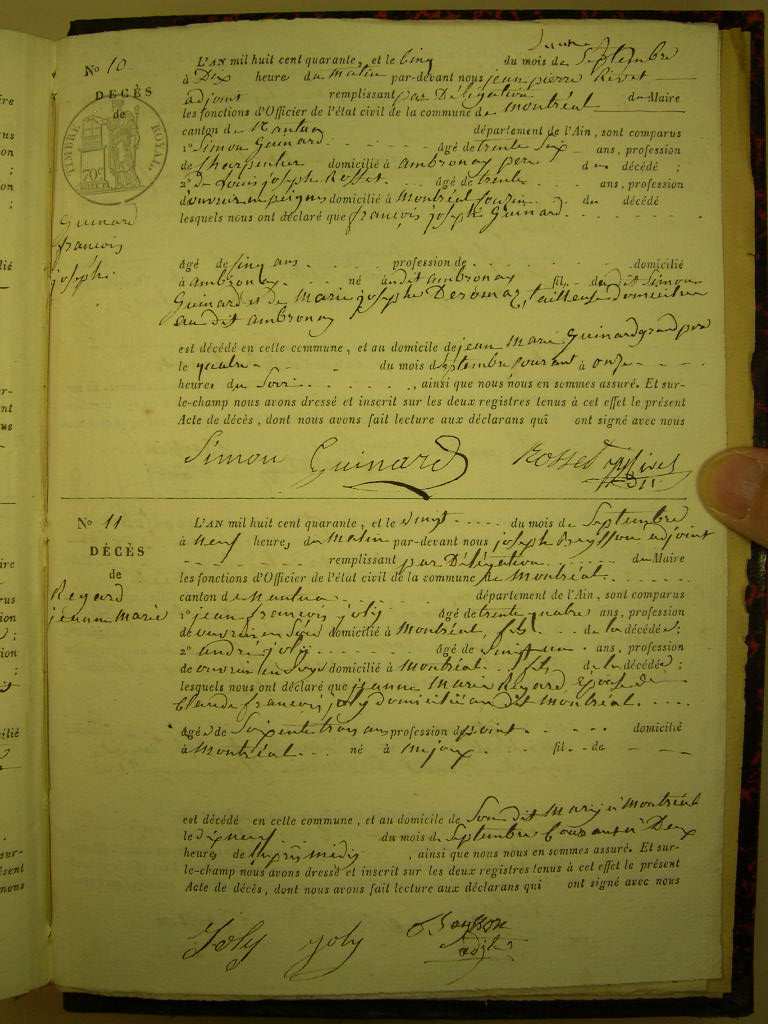 N° 10
DÉCÈS
de
TIMBRE ROYAL
Guinard
francois
joseph
L'AN mil huit cent quarante, et le cinq du mois de Septembre
à Dix heures du matin par-devant nous jean pierre Rivet
adjoint remplissant par Délégation du Maire
les fonctions d'Officier de l'état civil de la commune de Montréal
canton de Nantua département de l'Ain, sont comparus
1° Simon Guinard âgé de trente six ans, profession
de Charpentier domicilié à ambronay père du décédé ;
2° de Louis joseph Rosset âgé de trente ans, profession
d'ouvrier en peignes domicilié à Montréal cousin du décédé
lesquels nous ont déclaré que françois joseph Guinard
âgé de cinq ans profession de domicilié
à ambronay né audit ambronay fils dudit Simon
Guinard et de Marie josephe tailleuse domiciliée
audit ambronay
est décédé en cette commune, et au domicile de jean Marie Guinard grand père
le quatre du mois de septembre courant à onze
heures du Soir , ainsi que nous nous en sommes assuré. Et sur-
le-champ nous avons dressé et inscrit sur les deux registres tenus à cet effet le présent
Acte de décès, dont nous avons fait lecture aux déclarans qui ont signé avec nous
Simon Guinard Rosset Rivet
N° 11
DÉCÈS
de
Regard
jeanne Marie
L'AN mil huit cent quarante, et le vingt du mois de Septembre
à neuf heures du Matin par-devant nous joseph adjoint
remplissant par Délégation du Maire
les fonctions d'Officier de l'état civil de la commune de Montréal
canton de Nantua département de l'Ain, sont comparus
1° jean françois joly âgé de trente quatre ans, profession
de ouvrier en Soie domicilié à Montréal, fils de la décédée ;
2° andré joly âgé de ans, profession
de ouvrier en Soye domicilié à Montréal fils de la décédée ;
lesquels nous ont déclaré que jeanne Marie Regard épouse de
Claude francois joly domicilié audit Montréal
âgée de Soixente trois ans profession de point domicilié
à Montréal né à fil de
est décédé en cette commune, et au domicile de Son dit Mary à Montréal
le dix neuf du mois de Septembre Courant à Deux
heures de laprès midy , ainsi que nous nous en sommes assuré. Et sur-
le-champ nous avons dressé et inscrit sur les deux registres tenus à cet effet le présent
Acte de décès, dont nous avons fait lecture aux déclarans qui ont signé avec nous
Joly joly